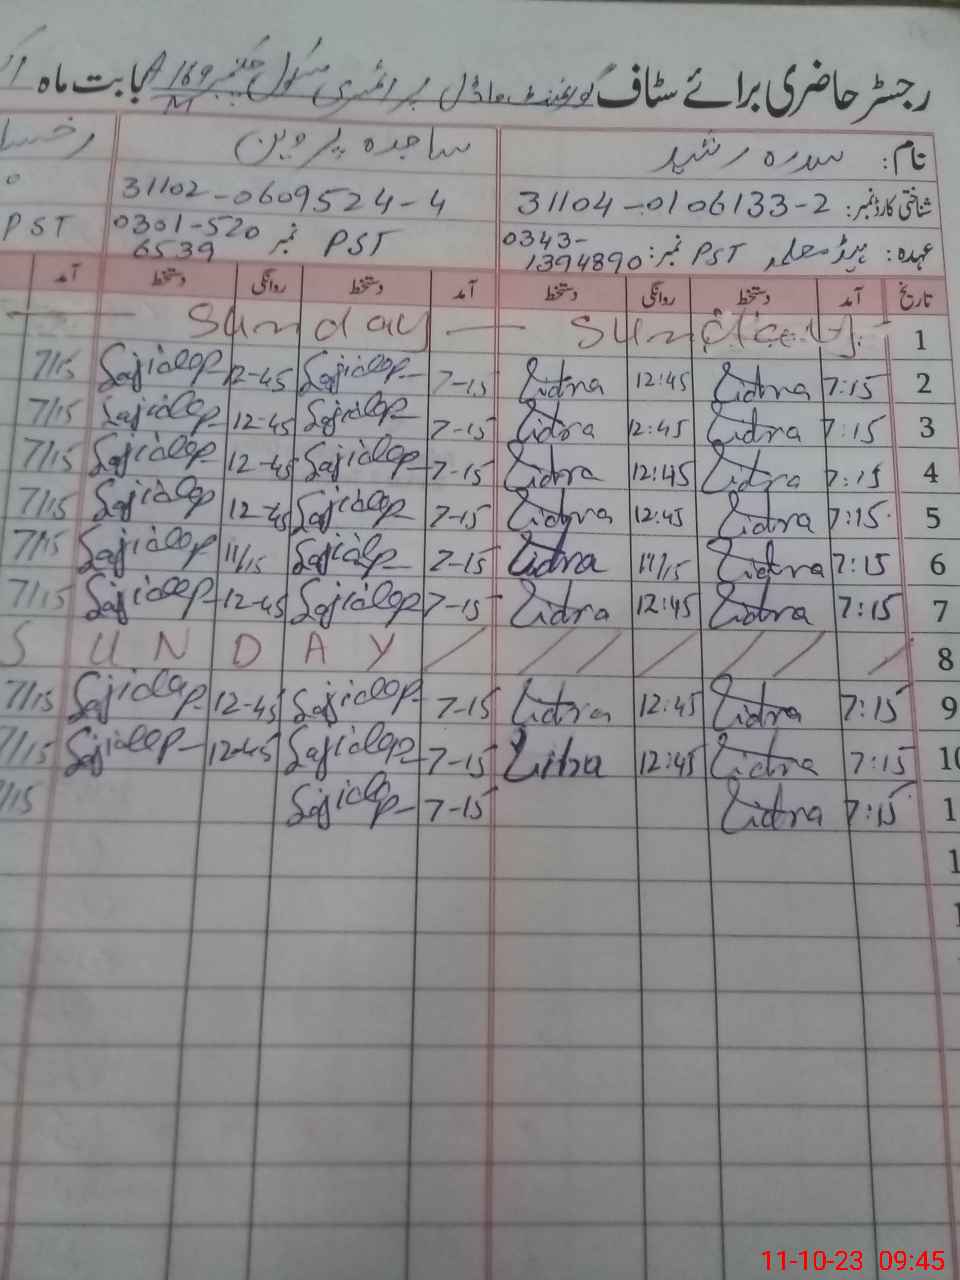 رجسٹر حاضری برائے سٹاف گورنمنٹ ماڈل پرائمری سکول چک نمبر 169/M A بابت ماہ
نام: سدرہ رشید ساجدہ پروین رخسا
شناختی کارڈ نمبر: 31104-0106133-2 31102-0609524-4
عہدہ: ہیڈ معلمہ PST نمبر: 0343-1394890 PST نمبر 0301-5206539 PST
تاریخ آمد دستخط روانگی دستخط آمد دستخط روانگی دستخط آمد
1 Sunday Sunday
2 7:15 Sidra 12:45 Sidra 7-15 Sajidap 12-45 Sajidap 7/15
3 7:15 Sidra 12:45 Sidra 7-15 Sajidap 12-45 Sajidap 7/15
4 7:15 Sidra 12:45 Sidra 7-15 Sajidap 12-45 Sajidap 7/15
5 7:15 Sidra 12:45 Sidra 7-15 Sajidap 12-45 Sajidap 7/15
6 7:15 Sidra 11/15 Sidra 7-15 Sajidap 11/15 Sajidap 7/15
7 7:15 Sidra 12:45 Sidra 7-15 Sajidap 12-45 Sajidap 7/15
8 SUNDAY / / / / / /
9 7:15 Sidra 12:45 Sidra 7-15 Sajidap 12-45 Sajidap 7/15
10 7:15 Sidra 12:45 Sidra 7-15 Sajidap 12-45 Sajidap 7/15
1 7:15 Sidra 7-15 Sajidap /15
1
1
11-10-23 09:45